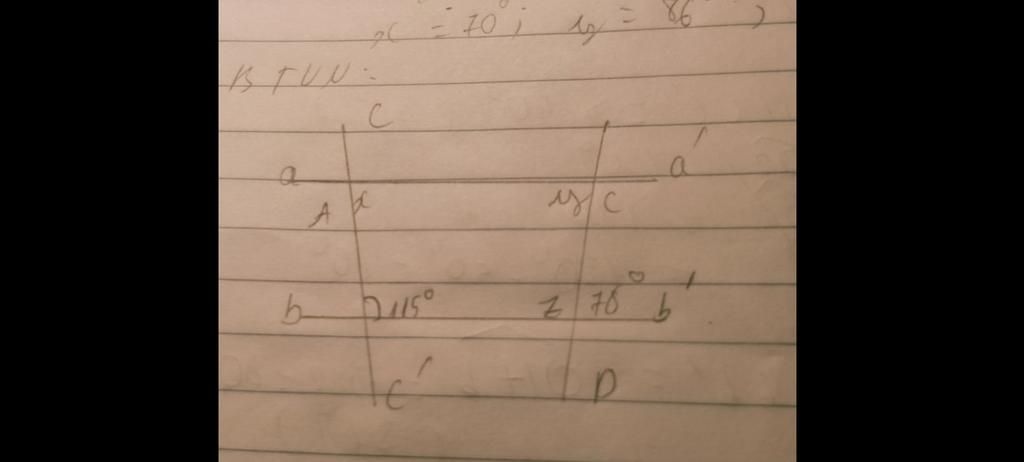 x = 70°; y = 86
BTVN:
C
a a'
A x y C
b 115° z 70° b'
C' D